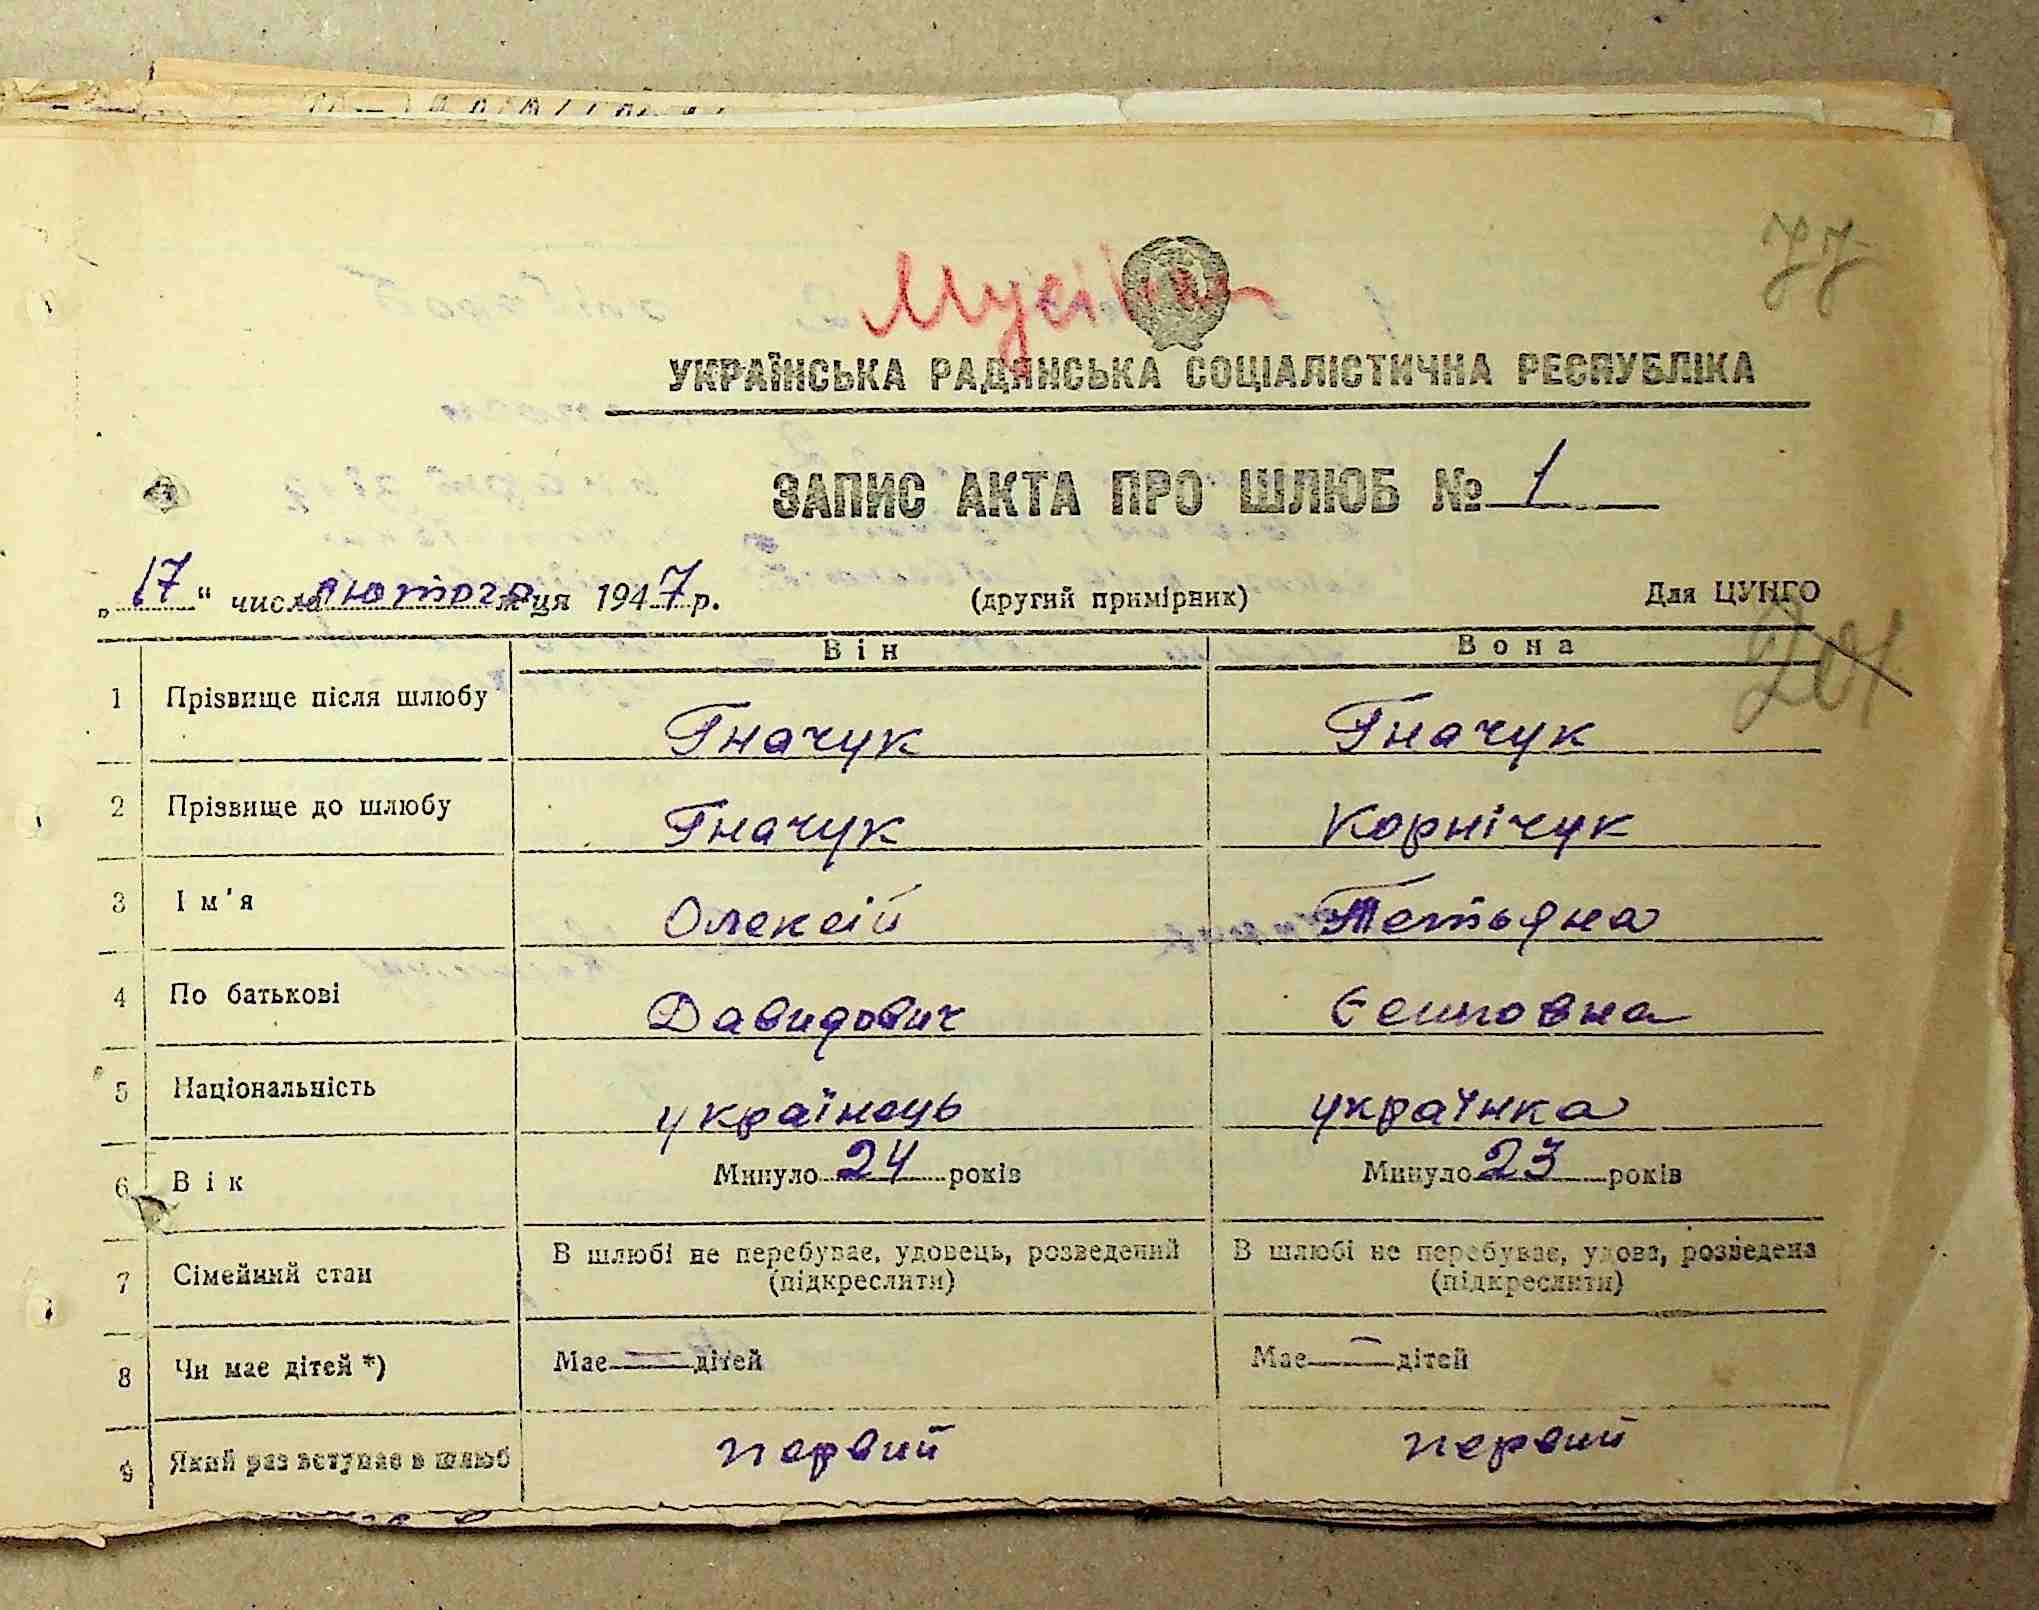 77
УКРАЇНСЬКА РАДЯНСЬКА СОЦІАЛІСТИЧНА РЕСПУБЛІКА
ЗАПИС АКТА ПРО ШЛЮБ № 1
„17“ числа лютого м-ця 1947 р. (другий примірник) Для ЦУНГО
201
Він Вона
1 Прізвище після шлюбу Гначук Гначук
2 Прізвище до шлюбу Гначук Корнічук
3 Ім'я Олексій Тетьяна
4 По батькові Давидович
5 Національність українець українка
6 Вік Минуло 24 років Минуло 23 років
7 Сімейний стан В шлюбі не перебуває, удовець, розведений В шлюбі не перебуває, удова, розведена
(підкреслити) (підкреслити)
8 Чи має дітей *) Має — дітей Має — дітей
9 Який раз вступає в шлюб первий первий